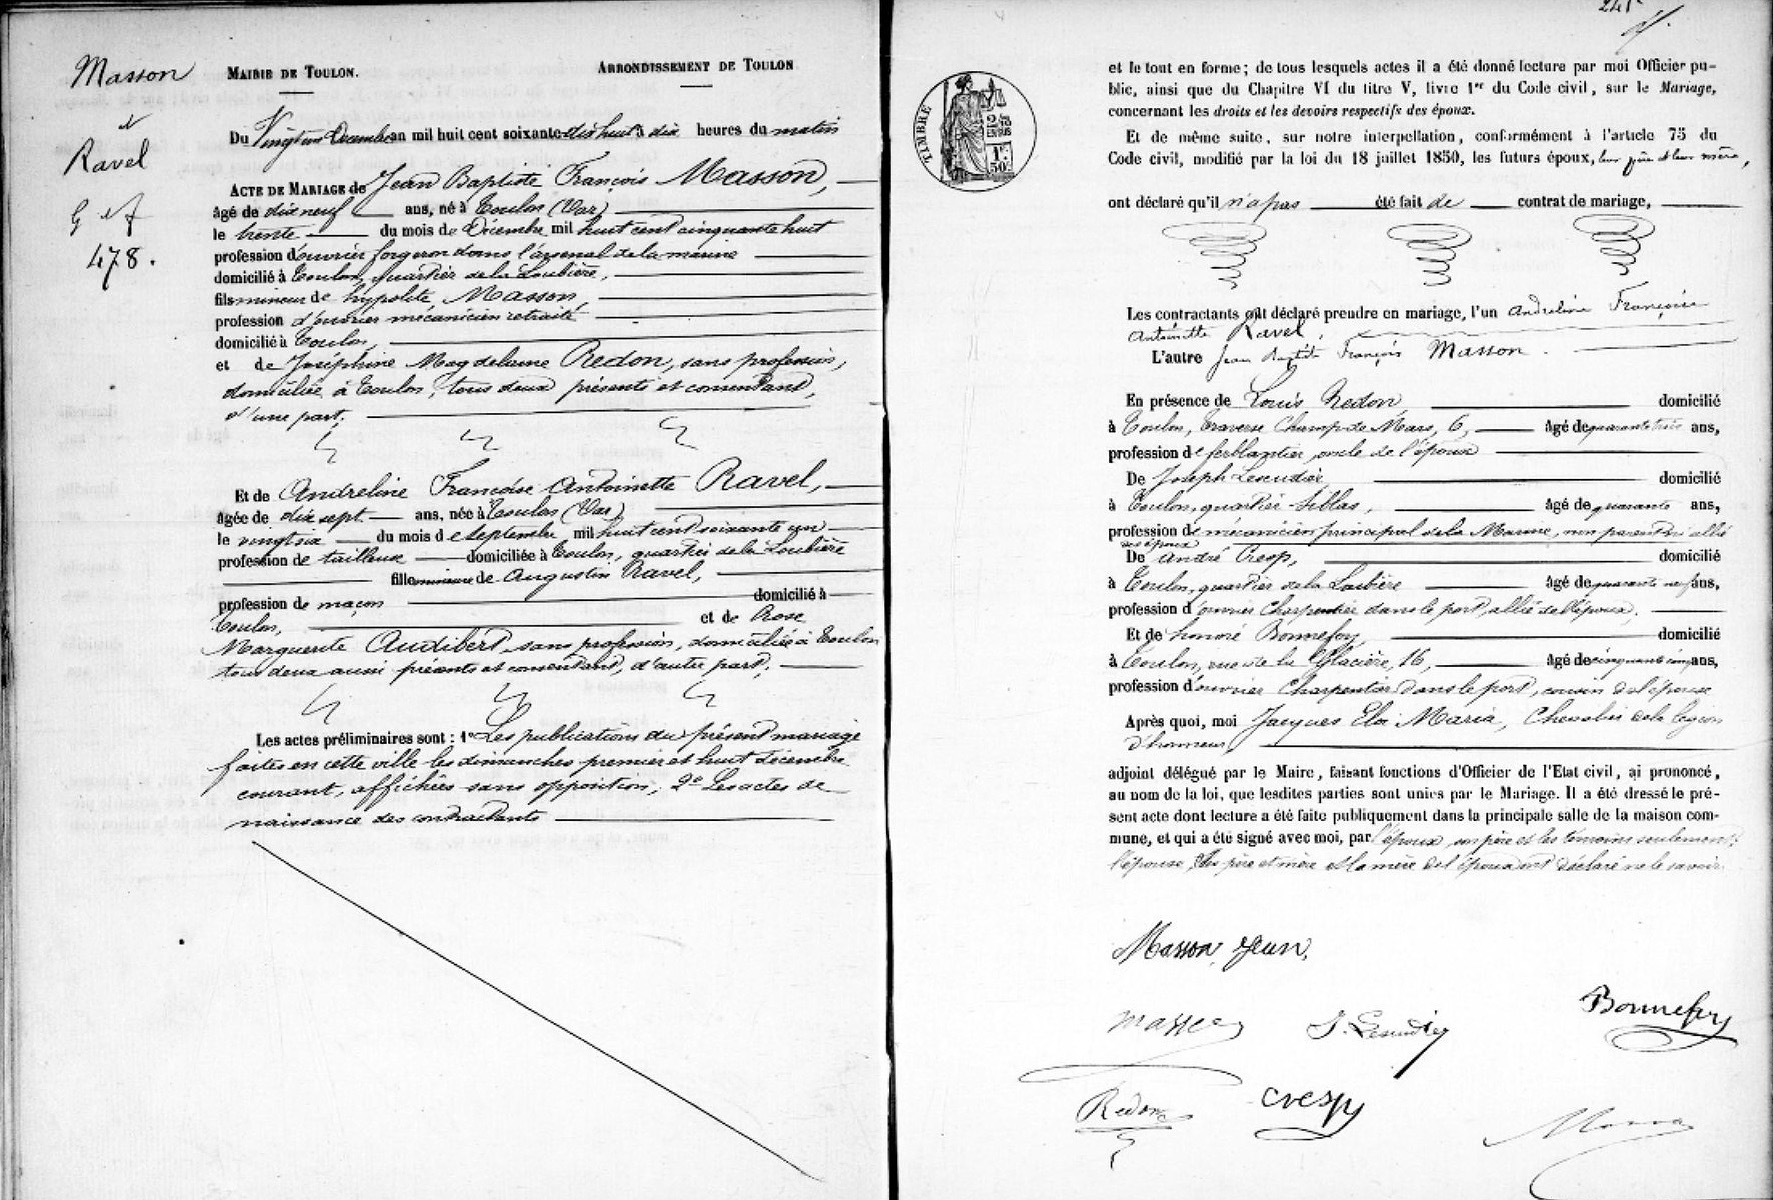 Masson
et
Ravel
G et f
478.
MAIRIE DE TOULON.
ARRONDISSEMENT DE TOULON
Du Vingt un Décembre an mil huit cent soixante dix huit à dix heures du matin
ACTE DE MARIAGE de Jean Baptiste François Masson,
âgé de dix neuf ans, né à Toulon (Var)
le trente du mois de Décembre mil huit cent cinquante huit
profession d'ouvrier forgeron dans l'arsenal de la marine
domicilié à Toulon, quartier de la Loubière,
fils mineur de hypolite Masson,
profession d'ouvrier mécanicien retraité
domicilié à Toulon,
et de Joséphine Magdelaine Redon, sans profession,
domiciliée à Toulon, tous deux présents et consentants,
d'une part;
Et de Andreline Françoise Antoinette Ravel,
âgée de dix sept ans, née à Toulon (Var)
le vingt six du mois de septembre mil huit cent soixante un
profession de tailleuse domiciliée à Toulon, quartier de la Loubière
fille mineure de Augustin Ravel,
profession de maçon domicilié à
Toulon, et de Rose
Marguerite Audibert, sans profession, domiciliée à Toulon
tous deux aussi présents et consentant, d'autre part;
Les actes préliminaires sont : 1° Les publications du présent mariage
faites en cette ville les dimanches premier et huit décembre
courant, affichées sans opposition; 2° Les actes de
naissance des contractants
241
TIMBRE
et le tout en forme; de tous lesquels actes il a été donné lecture par moi Officier pu-
blic, ainsi que du Chapitre VI du titre V, livre 1er du Code civil, sur le Mariage,
concernant les droits et les devoirs respectifs des époux.
Et de même suite, sur notre interpellation, conformément à l'article 75 du
Code civil, modifié par la loi du 18 juillet 1850, les futurs époux, leur père et leur mère,
ont déclaré qu'il n'a pas été fait de contrat de mariage,
Les contractants ont déclaré prendre en mariage, l'un Andreline Françoise
Antoinette Ravel,
L'autre Jean Baptiste François Masson.
En présence de Louis Redon, domicilié
à Toulon, Traverse Champ de Mars, 6, âgé de quarante trois ans,
profession de ferblantier, oncle de l'époux
De Joseph Lescudier, domicilié
à Toulon, quartier Siblas, âgé de quarante ans,
profession de mécanicien principal de la Marine, non parent ni allié
des époux
De André Cresp, domicilié
à Toulon, quartier de la Loubière âgé de quarante neuf ans,
profession d'ouvrier Charpentier dans le port, allié de l'époux.
Et de honoré Bonnefoy, domicilié
à Toulon, rue de la Glacière, 16, âgé de cinquante cinq ans,
profession d'ouvrier Charpentier dans le port, cousin de l'épouse
Après quoi, moi Jacques Eloi Maria, Chevalier de la Légion
d'honneur
adjoint délégué par le Maire, faisant fonctions d'Officier de l'Etat civil, ai prononcé,
au nom de la loi, que lesdites parties sont unies par le Mariage. Il a été dressé le pré-
sent acte dont lecture a été faite publiquement dans la principale salle de la maison com-
mune, et qui a été signé avec moi, par l'époux, son père et les témoins seulement;
l'épouse, ses père et mère et la mère de l'époux ont déclaré ne le savoir.
Masson Jean,
Masson
J. Lescudier
Bonnefoy
Redon
Cresp